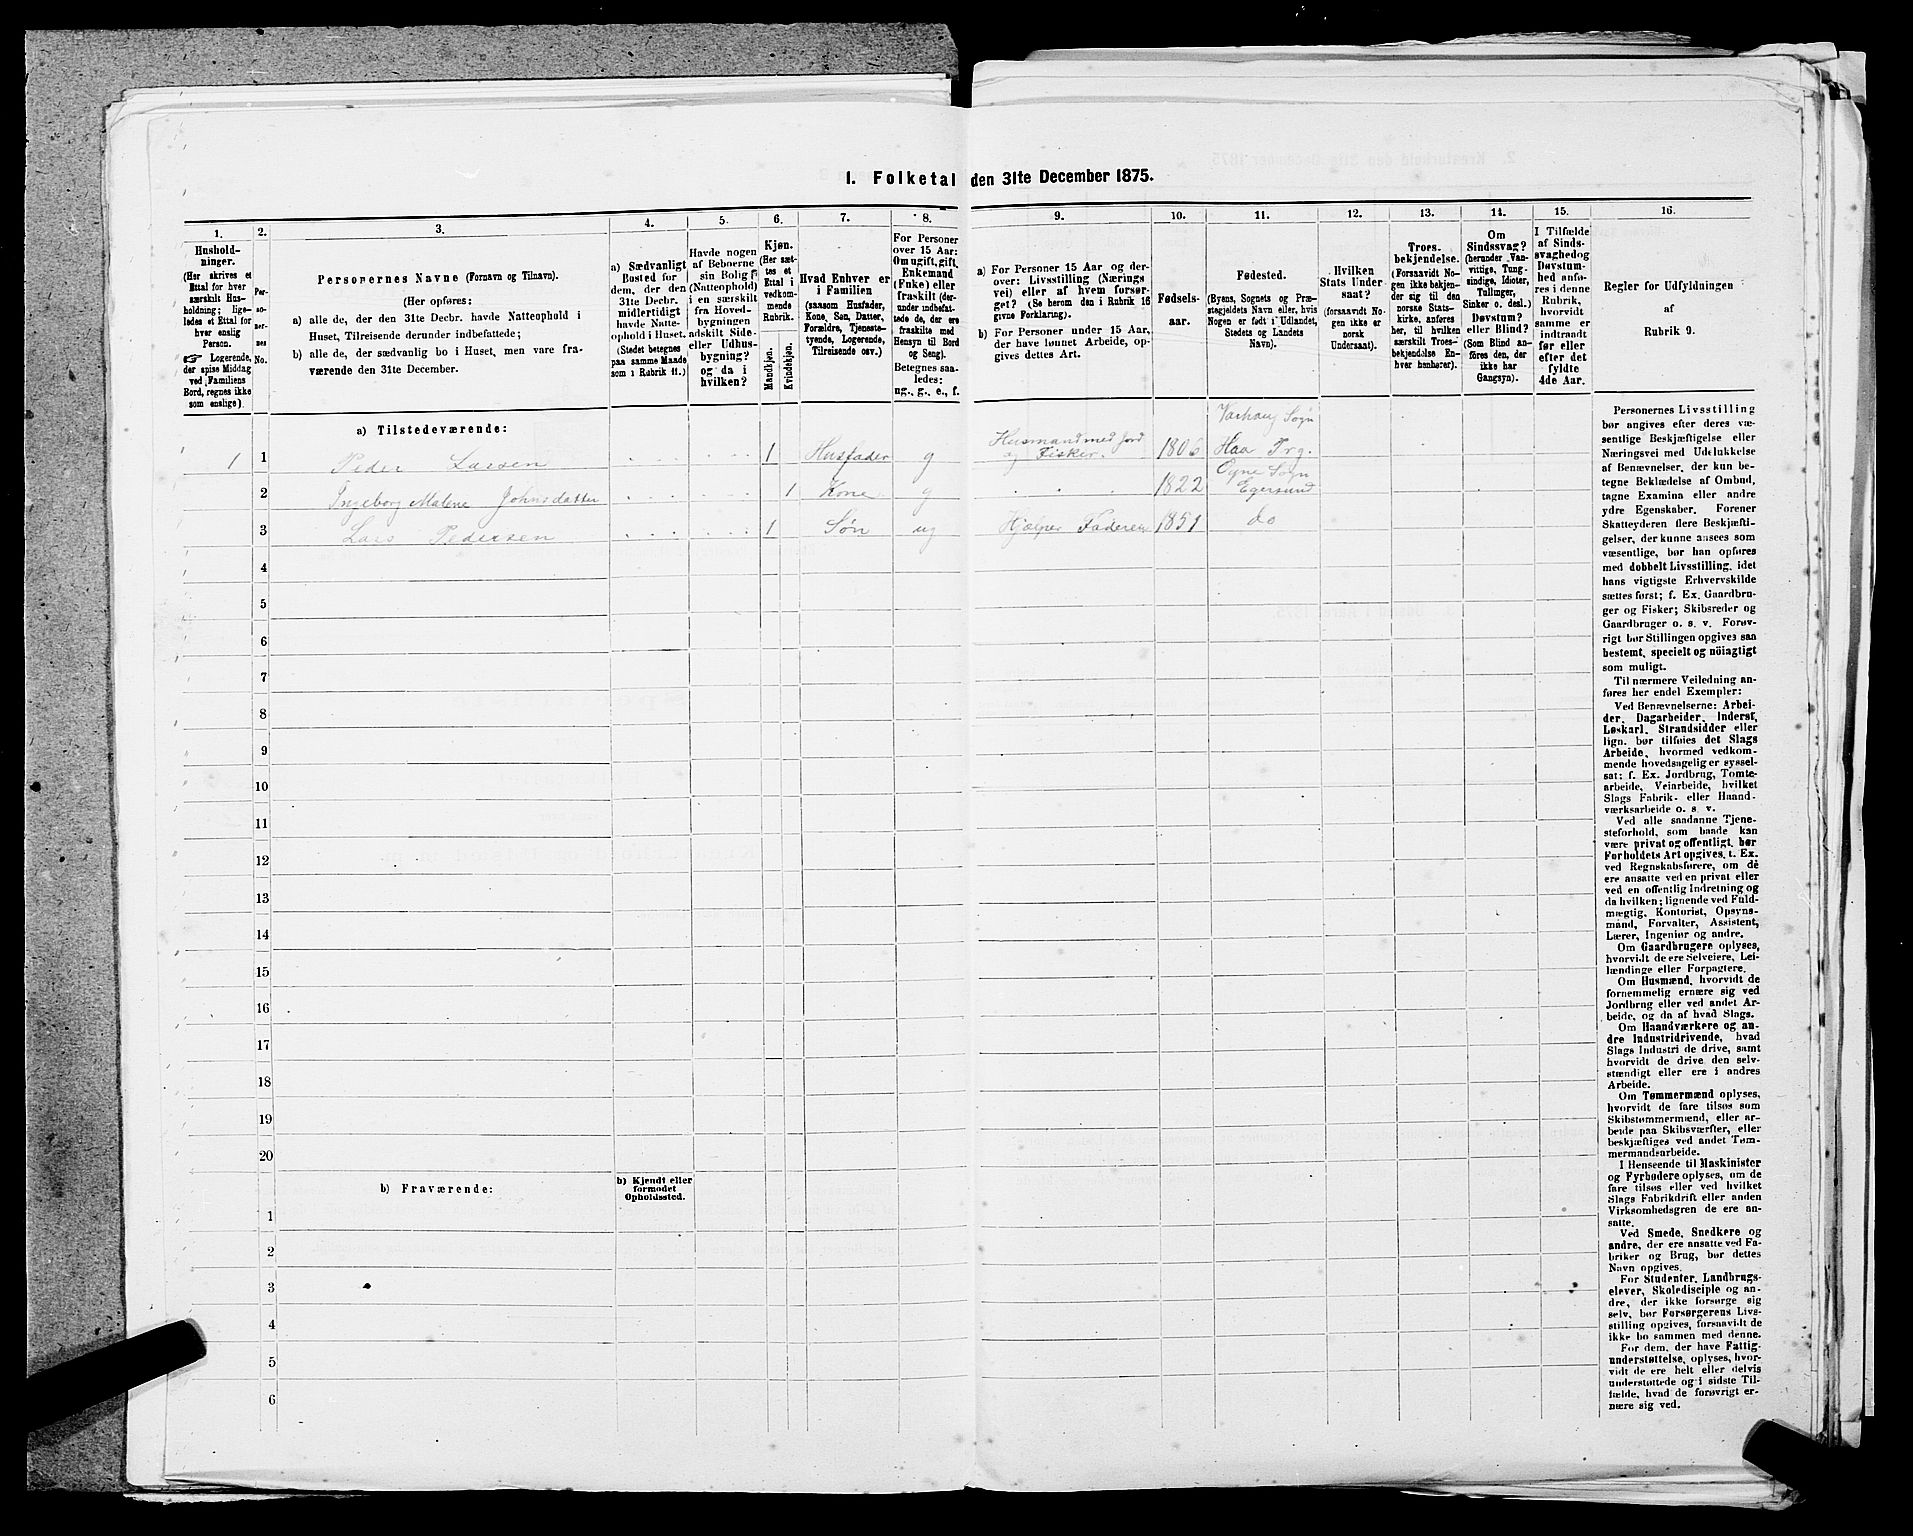 1. Folketal den 31te December 1875.
1.
Hushold-
ninger.
(Her skrives et
Ettal for hver
særskilt Hus-
holdning; lige-
ledes et Ettal for
hver enslig
Person.
☞ Logerende,
der spise Middag
ved Familiens
Bord, regnes ikke
som enslige).
2.
Per-
so-
ner-
nes
No.
3.
Personernes Navne (Fornavn og Tilnavn).
(Her opføres:
a) alle de, der den 31te Decbr. havde Natteophold i
Huset, Tilreisende derunder indbefattede;
b) alle de, der sædvanlig bo i Huset, men vare fra-
værende den 31te December.
4.
a) Sædvanligt
Bosted for
dem, der den
31te Decbr.
midlertidigt
havde Natte-
ophold i Huset.
(Stedet betegnes
paa samme Maade
som i Rubrik 11.)
5.
Havde nogen
af Beboerne
sin Bolig
(Natteophold)
i en særskilt
fra Hoved-
bygningen
adskilt Side-
eller Udhus-
bygning?
og da i
hvilken?
6.
Kjøn.
(Her sæt-
tes et
Ettal i
vedkom-
mende
Rubrik.
Mandkjøn.
Kvindekjøn.
7.
Hvad Enhver er
i Familien
(saasom Husfader,
Kone, Søn, Datter,
Forældre, Tjeneste-
tyende, Logerende,
Tilreisende osv.)
8.
For Personer
over 15 Aar:
Om ugift, gift,
Enkemand
(Enke) eller
fraskilt (der-
under indbefat-
tede de, der ere
fraskilte med
Hensyn til Bord
og Seng).
Betegnes saa-
ledes:
ug., g., e., f.
9.
a) For Personer 15 Aar og der-
over: Livsstilling (Nærings
vei) eller af hvem forsør-
get? (Se herom den i Rubrik 16
givne Forklaring).
b) For Personer under 15 Aar,
der have lønnet Arbeide, op-
gives dettes Art.
10.
Fødsels-
aar.
11.
Fødested.
(Byens, Sognets og Præ-
stegjeldets Navn eller, hvis
Nogen er født i Udlandet,
Stedets og Landets
Navn).
12.
Hvilken
Stats Under
saat?
(forsaavidt No-
gen ikke er
norsk
Undersaat).
13.
Troes-
bekjendelse.
(Forsaavidt No-
gen ikke bekjen-
der sig til den
norske Stats-
kirke, anføres
her, til hvilken
særskilt Troes-
bekjendelse En-
hver henhører).
14.
Om
Sindssvag?
(herunder Van-
vittige, Tung-
sindige, Idioter,
Tullinger,
Sinker o. desl.)
Døvstum?
eller Blind?
(Som Blind an-
føres den, der
ikke har
Gangsyn).
15.
I Tilfælde
af Sinds-
svaghedog
Døvstum-
hed anfø-
res i denne
Rubrik,
hvorvidt
samme er
indtraadt
før eller
efter det
fyldte
4de Aar.
16.
Regler for Udfyldningen
af
Rubrik 9.
a) Tilstedeværende:
1 1 Peder Larsen 1 Husfader g Husmand med Jord og Fisker. 1806 Varhaug Sogn Haa Prg.
2 Ingeborg Malene Johnsdatter 1 Kone g 1822 Ogne Sogn Egersund
3 Lars Pedersen 1 Søn ug Hjælper Faderen 1851 do
4
5
6
7
8
9
10
11
12
13
14
15
16
17
18
19
20
b) Fraværende:
b) Kjendt eller
formodet
Opholdssted.
1
2
3
4
5
6
Personernes Livsstilling
bør angives efter deres væ-
sentlige Beskjæftigelse eller
Næringsvei med Udelukkelse
af Benævnelser, der kun be-
tegne Beklædelse af Ombud,
tagne Examina eller andre
ydre Egenskaber. Forener
Skatteyderen flere Beskjæfti-
gelser, der kunne ansees som
væsentlige, bør han opføres
med dobbelt Livsstilling, idet
hans vigtigste Erhvervskilde
sættes først; f. Ex. Gaardbru-
ger og Fisker; Skibsreder og
Gaardbruger o. s. v. Forøv-
rigt bør Stillingen opgives saa
bestemt, specielt og nöiagtigt
som muligt.
Til nærmere Veiledning an-
føres her endel Exempler:
Ved Benævnelserne: Arbei-
der, Dagarbeider, Inderst,
Løskarl, Strandsidder eller
lign. bør tilføies det Slags
Arbeide, hvormed vedkom-
mende hovedsagelig er syssel-
sat; f. Ex. Jordbrug, Tomte-
arbeide, Veiarbeide, hvilket
Slags Fabrik- eller Haand-
værksarbeide o. s. v.
Ved alle saadanne Tjene-
steforhold, som baade kan
være privat og offentligt, bør
Forholdets Art opgives, t. Ex.
ved Regnskabsførere, om de
ere ansatte ved en privat eller
ved en offentlig Indretning og
da hvilken; lignende ved Fuld-
mægtig, Kontorist, Opsyns-
mand, Forvalter, Assistent,
Lærer, Ingeniør og andre.
Om Gaardbrugere oplyses,
hvorvidt de ere Selveiere, Lei-
lændinge eller Forpagtere.
Om Husmænd, hvorvidt de
fornemmelig ernære sig ved
Jordbrug eller ved andet Ar-
beide, og da af hvad Slags.
Om Haandværkere og an-
dre Industridrivende, hvad
Slags Industri de drive, samt
hvorvidt de drive den selv-
stændigt eller ere i andres
Arbeide.
Om Tømmermænd oplyses,
hvorvidt de fare tilsøs som
Skibstømmermænd, eller ar-
beide paa Skibsværfter, eller
beskjæftiges ved andet Tøm-
mermandsarbeide.
I Henseende til Maskinister
og Fyrbødere oplyses, om de
fare tilsøs eller ved hvilket
Slags Fabrikdrift eller anden
Virksomhedsgren de ere an-
satte.
Ved Smede, Snedkere og
andre, der ere ansatte ved Fa-
briker og Brug, bør dettes
Navn opgives.
For Studenter, Landbrugs-
elever, Skoledisciple og an-
dre, der ikke forsørge sig
selv, bør Forsørgerens Livs-
stilling opgives, forsaavidt de
ikke bo sammen med denne.
For dem, der have Fattig-
understøttelse, oplyses, hvor-
vidt de ere helt eller delvis
understøttede og i sidste Til-
fælde, hvad de forøvrigt er-
nære sig ved.